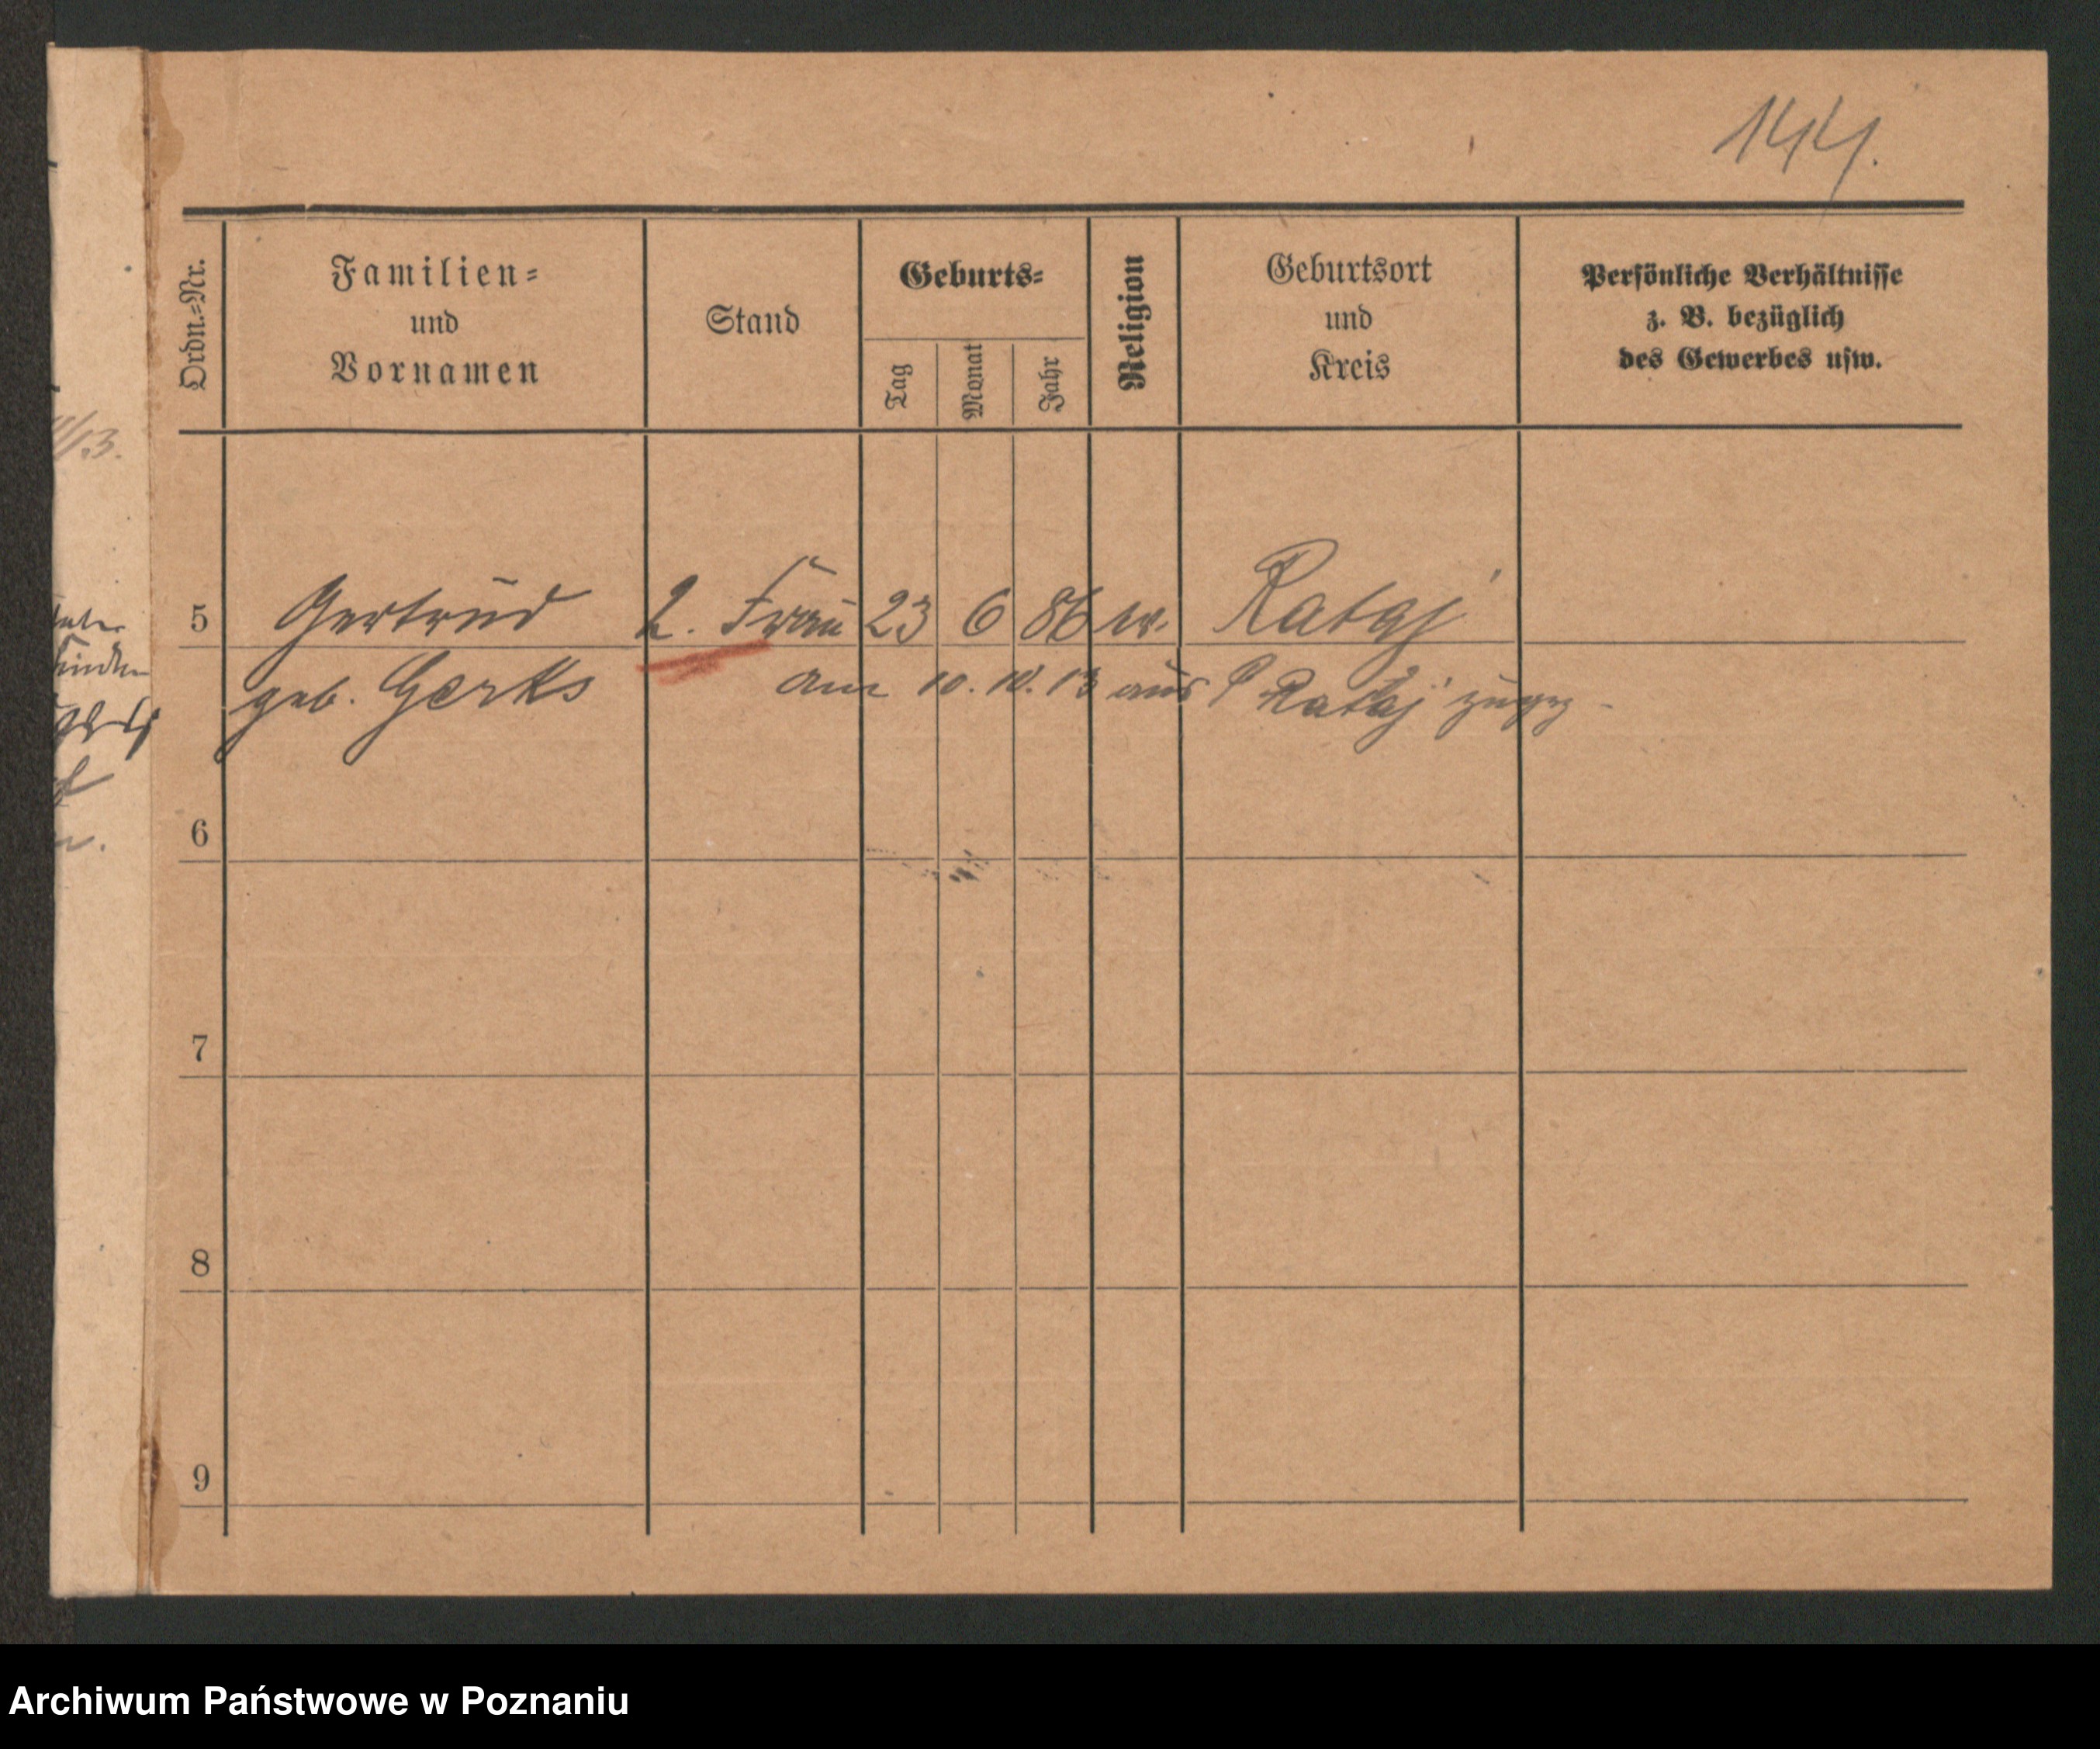 144.
Ordn.=Nr.
Familien=
und
Vornamen
Stand
Geburts=
Tag
Monat
Jahr
Religion
Geburtsort
und
Kreis
Persönliche Verhältnisse
z. B. bezüglich
des Gewerbes usw.
/13.
5 Gertrud 2. Frau 23 6 86 Rataj
geb. Gerks am 10. 10. 13 aus Rataj zugez.
6
7
8
9
Archiwum Państwowe w Poznaniu